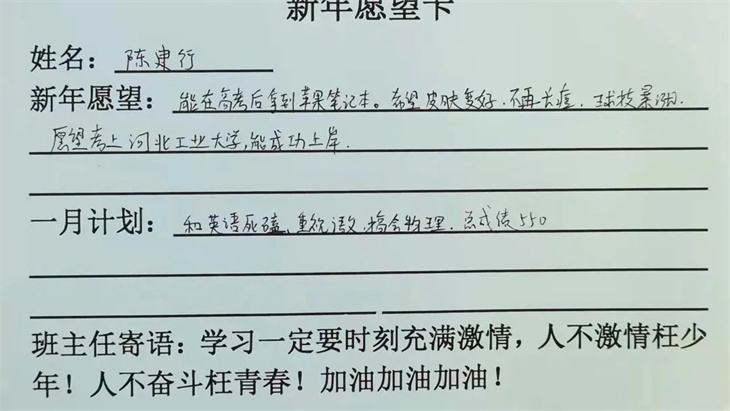 新年愿望卡
姓名：陈建行
新年愿望：能在高考后拿到苹果笔记本。希望皮肤变好.不再长痘.球技暴涨.
愿望考上河北工业大学,能成功上岸.
一月计划：和英语死磕,重视语文.搞会物理.总成绩550
班主任寄语：学习一定要时刻充满激情，人不激情枉少
年！人不奋斗枉青春！加油加油加油！